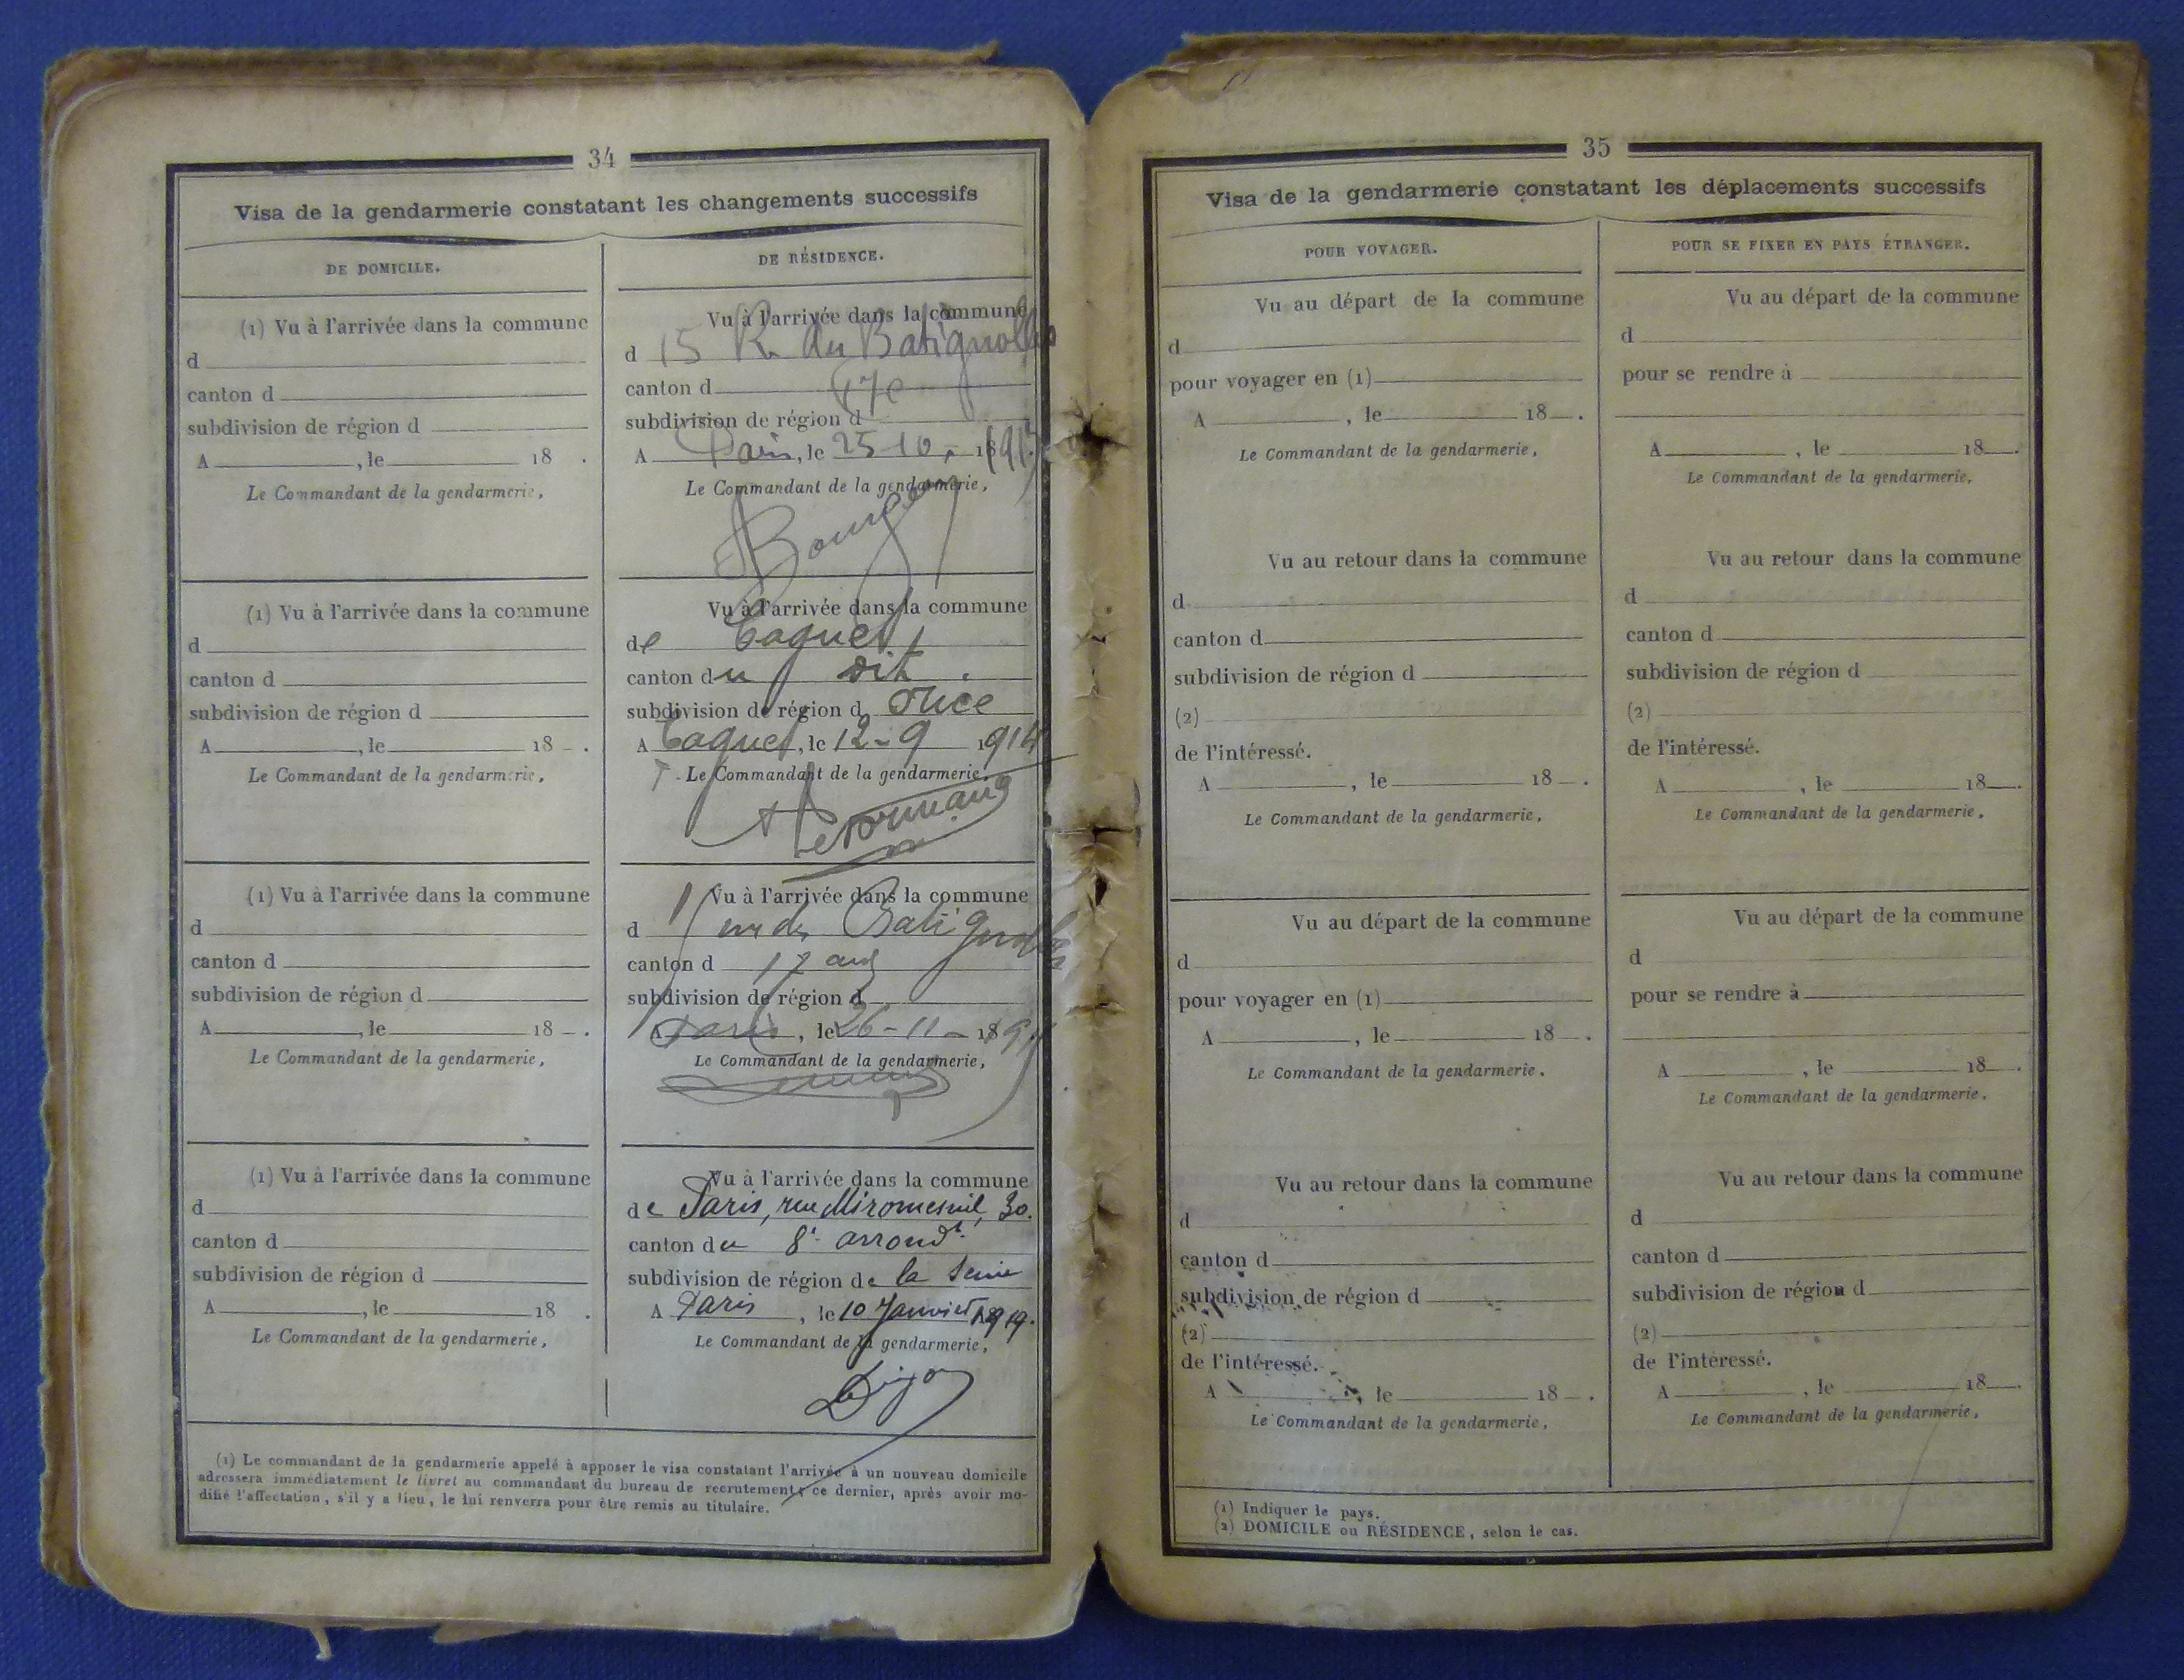 34
Visa de la gendarmerie constatant les changements successifs
DE DOMICILE.
(1) Vu à l'arrivée dans la commune
d
canton d
subdivision de région d
A , le 18 .
Le Commandant de la gendarmerie,
(1) Vu à l'arrivée dans la commune
d
canton d
subdivision de région d
A , le 18 .
Le Commandant de la gendarmerie,
(1) Vu à l'arrivée dans la commune
d
canton d
subdivision de région d
A , le 18 .
Le Commandant de la gendarmerie,
(1) Vu à l'arrivée dans la commune
d
canton d
subdivision de région d
A , le 18 .
Le Commandant de la gendarmerie,
DE RÉSIDENCE.
Vu à l'arrivée dans la commune
d 15 R. du Batignolles
canton d 17e
subdivision de région d
A Paris, le 25-10-
Le Commandant de la gendarmerie,
Vu à l'arrivée dans la commune
de
canton du dit
subdivision de région d
A , le 12-9 1914
Le Commandant de la gendarmerie,
Vu à l'arrivée dans la commune
d Batignolles
canton d 17
subdivision de région d
A Paris, le 26-11-
Le Commandant de la gendarmerie,
Vu à l'arrivée dans la commune
de Paris, rue Miromesnil, 30.
canton du 8e arrondt
subdivision de région de la Seine
A Paris, le 10 Janvier 1919.
Le Commandant de la gendarmerie,
(1) Le commandant de la gendarmerie appelé à apposer le visa constatant l'arrivée à un nouveau domicile
adressera immédiatement le livret au commandant du bureau de recrutement; ce dernier, après avoir mo-
difié l'affectation, s'il y a lieu, le lui renverra pour être remis au titulaire.
35
Visa de la gendarmerie constatant les déplacements successifs
POUR VOYAGER.
Vu au départ de la commune
d
pour voyager en (1)
A , le 18 .
Le Commandant de la gendarmerie,
Vu au retour dans la commune
d
canton d
subdivision de région d
(2)
de l'intéressé.
A , le 18 .
Le Commandant de la gendarmerie,
Vu au départ de la commune
d
pour voyager en (1)
A , le 18 .
Le Commandant de la gendarmerie.
Vu au retour dans la commune
d
canton d
subdivision de région d
(2)
de l'intéressé.
A , le 18 .
Le Commandant de la gendarmerie,
POUR SE FIXER EN PAYS ÉTRANGER.
Vu au départ de la commune
d
pour se rendre à
A , le 18 .
Le Commandant de la gendarmerie,
Vu au retour dans la commune
d
canton d
subdivision de région d
(2)
de l'intéressé.
A , le 18 .
Le Commandant de la gendarmerie,
Vu au départ de la commune
d
pour se rendre à
A , le 18 .
Le Commandant de la gendarmerie,
Vu au retour dans la commune
d
canton d
subdivision de région d
(2)
de l'intéressé.
A , le 18 .
Le Commandant de la gendarmerie,
(1) Indiquer le pays.
(2) DOMICILE ou RÉSIDENCE, selon le cas.